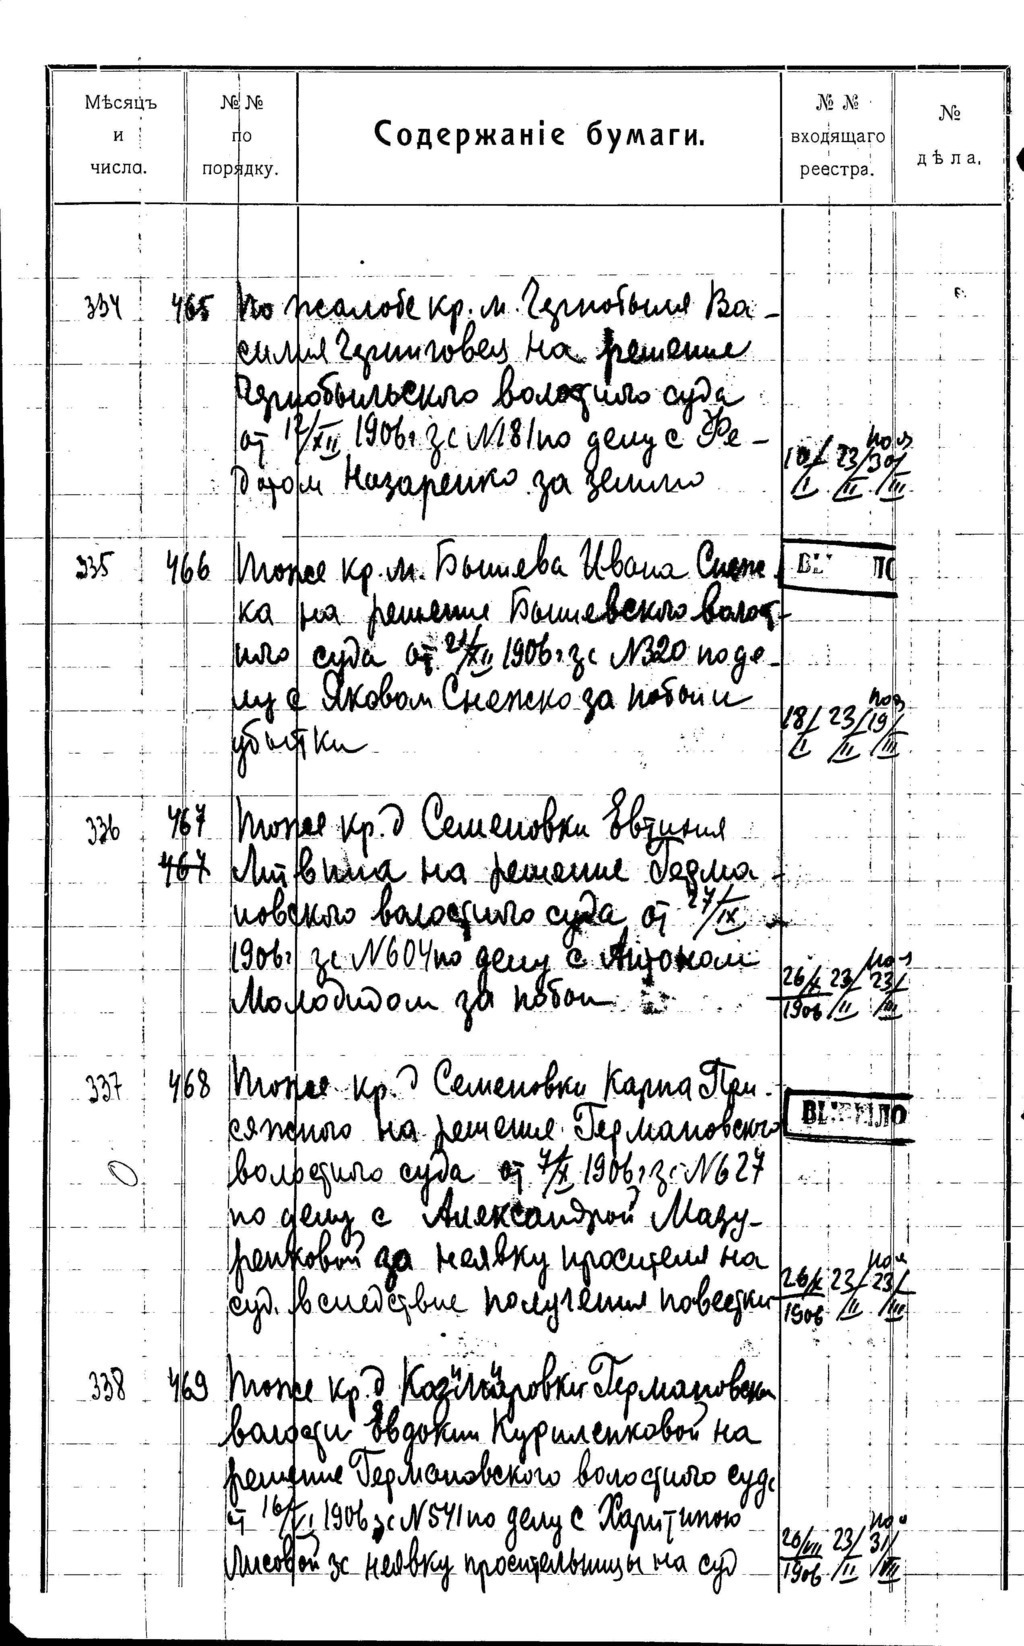 Мѣсяцъ и числа.
№ № по порядку.
Содержаніе бумаги.
№ № входящаго реестра.
№ дѣла.
334 465 По жалобе кр. м. Чернобыля Ва-
силия Черниговец на решение
Чернобыльского волостного суда
от 12/XII 1906г за N181 по делу с Фе-
дотом Назаренко за землю
18/I 23/II 30/III
335 466 Тоже кр. м. Бышева Ивана Снеж
ка на решение Бышевского волост-
ного суда от 21/XII 1906г за N320 по де-
лу с Яковом Снежко за побои и
убытки
18/I 23/II 19/III
336 467 Тоже кр. д Семеновки Евтихия
467 Литвина на решение Герма-
новского волостного суда от 27/IX
1906г за N604 по делу с Антоном
Молодидом за побои
26/X 1906 23/II 23/III
337 468 Тоже кр. д Семеновки Карпа При-
сяжного на решение Германовского
волостного суда от 7/X 1906г за N627
по делу с Александрой Мазу-
ренковой за неявку просителя на
суд. вследствие получения повестки
ВЫБЫЛО
26/X 1906 23/II 23/III
338 469 Тоже кр. д Казимировки Германовской
волости Евдокии Куриленковой на
решение Германовского волостного суда
от 16/VI 1906 за N541 по делу с Харитиною
Лисовой за неявку просительницы на суд
26/VII 1906 23/II 31/VIII